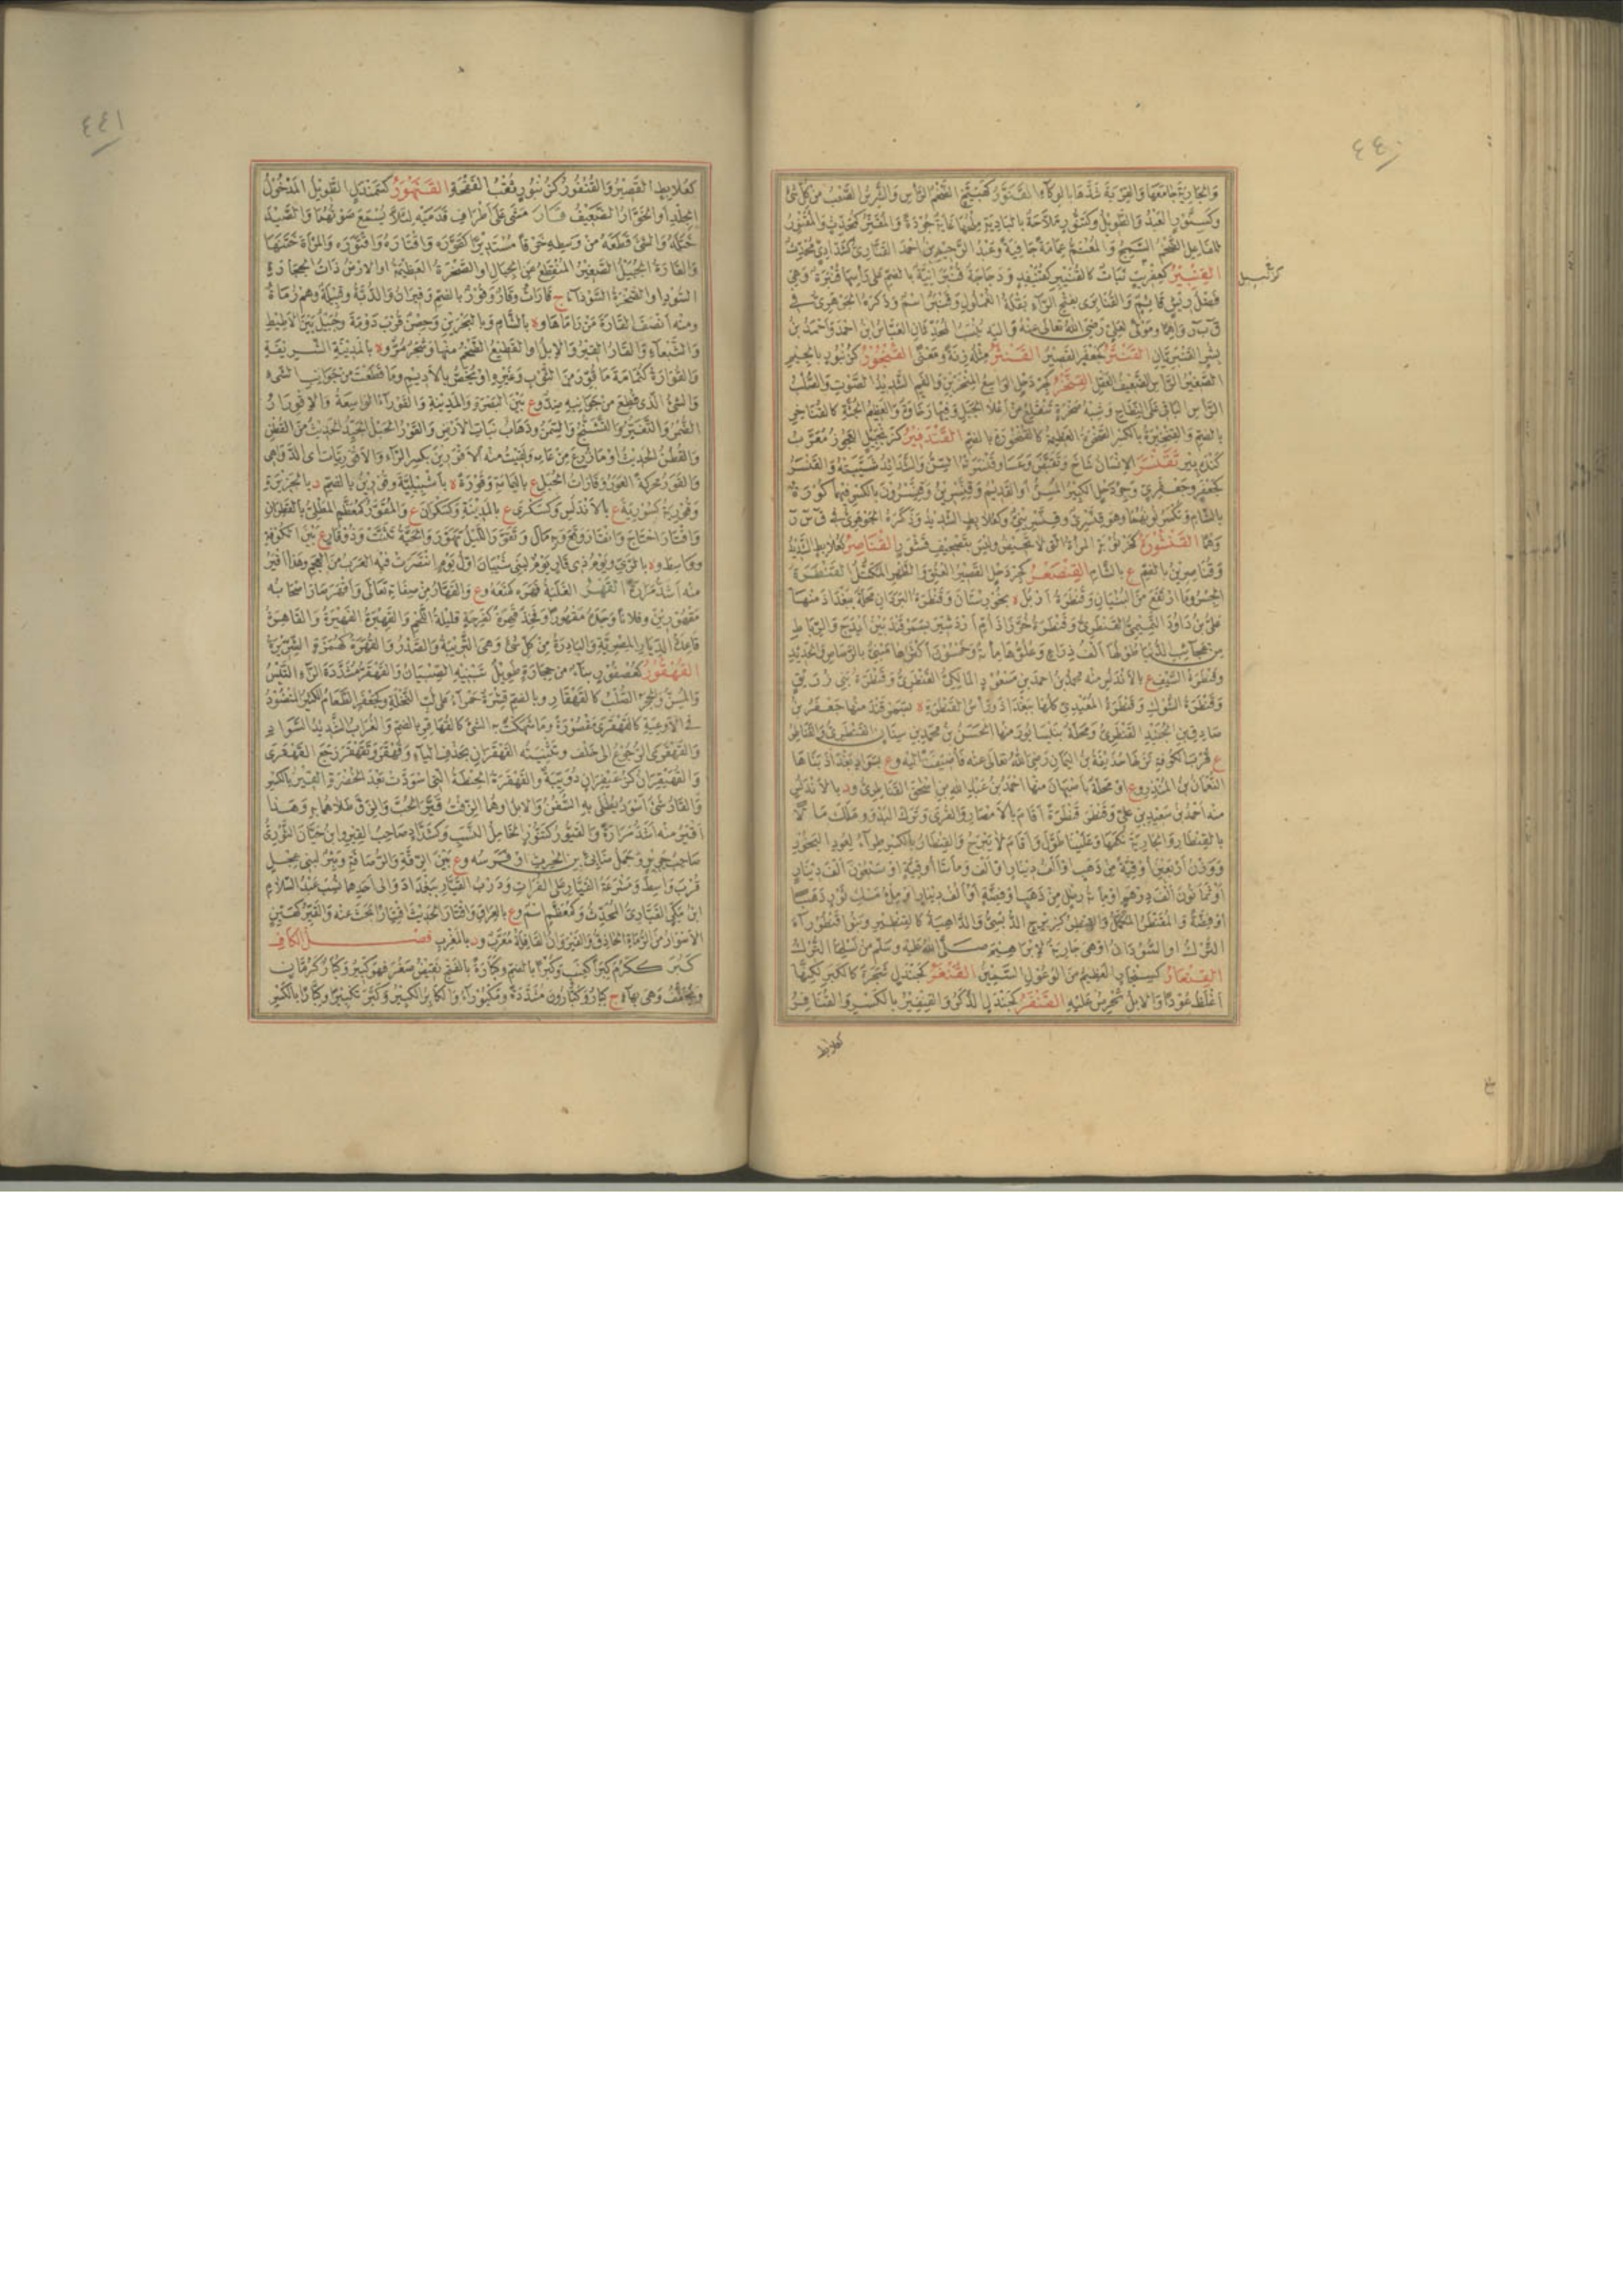 ٤٤٠
والجارية جامعها والقربة شدها بالوكاء القنور كهبيخ الضخم الرأس والشرس الصعب من كل شئ
وكسنور العبد والطويل وكتنور ملاحة بالبادية ملحها غاية جودة والمقنر كمحدث والمقنور
للفاعل الضخم السميج والمعتم عمامة جافية وعبد الرحيم بن احمد القناري كشدادي محدث
القنبير كعفريت نبات كالقنيبر كقنيفد ودجاجة قنبرانية بالضم على رأسها قنبرة وهي
كزنجبيل
فضل ريش قائم والقنابرى بفتح الراء بقلة الغملول وقنبر اسم وذكره الجوهري في
ق ب ر واهما ومولى لعلي رضى الله تعالى عنه واليه ينسب المحدثان العباس بن احمد واحمد بن
بشر القنبريان القنثر كجعفر القصير القنثر مثله زنة ومعنى القنجور كزنبور بالجيم
الصغير الرأس الضعيف العقل القنخر كجردحل الواسع المنخرين والفم الشديد الصوت والصلب
الرأس الباقي على النطاح وشبه صخرة تنقلع من اعلا الجبل وفيها رخاوة والعظيم الجثة كالقناخر
بالضم والقنخيرة بالكسر الصخرة العظيمة كالقنخورة بالضم القندفير كزنجبيل العجوز معرب
كنده پير تقنسر الانسان شاخ وتقبض وعسا وقنسرته السن والشدائد شيبته والقنسر
كجعفر وجعفري وجردحل الكبير المسن او القديم وقنسرين وقنسرون بالكسر فيهما كورة
بالشام وتكسر نونهما وهو قنسري وقنسريني وكعلابط الشديد وذكره الجوهري في ق س ر
وهما القنشورة كخرنوبة المرأة التي لا تحيض وليس بتصحيف قشور القناصر كعلابط الشديد
وقناصرين بالضم ع بالشام القنصعر كجردحل القصير العنق والظهر المكتل القنطرة
الجسر وما ارتفع من البنيان وقنطرة اربل ه بخوزستان وقنطرة البردان محلة ببغداد منها
علي بن داود التميمي القنطري وقنطرة خرزاذ ام اردشير بسمرقند بين ايذج والرباط
من عجائب الدنيا طولها الف ذراع وعلوها مائة وخمسون اكثرها مبني بالرصاص والحديد
وقنطرة السيف ع بالاندلس منه محمد بن احمد بن مسعود المالكي القنطري وقنطرة بني زريق
وقنطرة الشوك وقنطرة المعبدي كلها ببغداد ورأس القنطرة ه بسمرقند منها جعفر بن
صادق بن الجنيد القنطري ومحلة بنيسابور منها الحسن بن محمد بن سنان القنطري والقناطر
ع قرب الكوفة نزلها حذيفة بن اليمان رضى الله تعالى عنه فاضيفت اليه وع بسواد بغداد بناها
النعمان بن المنذر وع او محلة باصبهان منها احمد بن عبد الله بن اسحق القناطري ود بالاندلس
منه احمد بن سعيد بن علي وقنطر قنطرة اقام بالامصار والقرى وترك البدو وملك مالا
بالقنطار والجارية نكحها وعلينا طول واقام لا يبرح والقنطار بالكسر طراء لعود البخور
ووزن اربعين اوقية من ذهب او الف دينار او الف ومائتا اوقية او سبعون الف دينار
او ثمانون الف درهم او مائة رطل من ذهب او فضة او الف دينار او ملء مسك ثور ذهبا
او فضة والمقنطر المكمل والقنطر كزبرج الدبسي والداهية كالقنطير وبنو قنطوراء
الترك او السودان او هي جارية لابراهيم صلى الله عليه وسلم من نسلها الترك
القنعار كسنجار العظيم من الوعول السمين القنغر كجندل شجرة كالكبر لكنها
اغلظ عودا والابل تحرص عليه القنفر كجندل الذكر والقنفير بالكسر والقنافر
كعلابط
٤٤١
كعلابط القصير والقنفور كزنبور ثقب الفقحة القنهور كقمندل الطويل المدخول
الجلد او الخوار الضعيف قار مشى على اطراف قدميه لئلا يسمع صوتهما والصيد
ختله والشئ قطعه من وسطه خرقا مستديرا كقوره واقتاره واقتوره والمرأة ختنها
والقارة الجبيل الصغير المنقطع من الجبال او الصخرة العظيمة او الارض ذات الحجارة
السود او الصخرة السوداء ج قارات وقار وقور بالضم وقيران والدبة وقبيلة وهم رماة
ومنه انصف القارة من راماها وه بالشام وبالبحرين وحصن قرب دومة وجبيل بين الاطيط
والشبعاء والقار القير والابل او القطيع الضخم منها وشجر مر وه بالمدينة الشريفة
والقوارة كثمامة ما قور من الثوب وغيره او يخص بالاديم وما قطعت من جوانب الشئ
والشئ الذي قطع من جوانبه ضد وع بين البصرة والمدينة والقوراء الواسعة والاقورار
الضمر والتغير والتشنج والسمن وذهاب نبات الارض والقور الحبل الجيد الحديث من القطن
والقطن الحديث او ما زرع من عامه ولقيت منه الاقورين بكسر الراء والاقوريات اي الدواهي
والقور محركة العور وقارات الحبل ع باليمامة وقورة ه باشبيلية وقورين بالضم د بالجزيرة
وقورية كسورية ع بالاندلس وكسكرى ع بالمدينة وكسكران ع والمقور كمعظم المطلي بالقطران
واقتار احتاج وانقار وقع وبه مال وتقور الليل تهور والحية تثنت وذو قار ع بين الكوفة
وواسط وه بالري ويوم ذي قار يوم لبني شيبان اول يوم انتصرت فيه العرب من العجم وهذا اقير
منه اشد مرارة القهر الغلبة قهره كمنعه وع والقهار من صفاته تعالى واقهر صار اصحابه
مقهورين وفلانا وجده مقهورا وفخذ قهرة كفرحة قليلة اللحم والقهيرة الفهيرة والقاهرة
قاعدة الديار المصرية والبادرة من كل شئ وهي التريبة والصدر والقهرة كهمزة الشريرة
القهقور كعصفور بناء من حجارة طويل يبنيه الصبيان والقهقر مشددة الراء التيس
والمسن والحجر الصلب كالقهقار وبالضم قشرة حمراء على لب النخلة وكجعفر الطعام الكثير المنضود
في الاوعية كالقهقرى مقصورة وما سهكت به الشئ كالقهاقر بالضم والغراب الشديد السواد
والقهقرى الرجوع الى خلف وتثنيته القهقران بحذف الياء وقهقر وتقهقر رجع القهقرى
والقهيقران كزعيفران دويبة والقهقرة الحنطة التي اسودت بعد الخضرة القير بالكسر
والقار شئ اسود يطلى به السفن والابل او هما الزفت قير الحب والزق طلاهما به وهذا
اقير منه اشد مرارة والقيور كتنور الخامل النسب وكشداد صاحب القير وابن حيان الثوري
صاحب جرير وجمل ضابئ بن الحرث او فرسه وع بين الرقة والرصافة وبئر لبني عجل
قرب واسط ومشرعة القيار على الفرات ودرب القيار ببغداد والى احدهما نسب عبد السلام
ابن مكي القياري المحدث وكمعظم اسم وع بالعراق واقتار الحديث اقتيارا بحث عنه والقير كهين
الاسوار من الرماة الحاذق والقيروان القافلة معرب ود بالمغرب فصل الكاف
كبر ككرم كبرا كعنب وكبرا بالضم وكبارة بالفتح نقيض صغر فهو كبير وكبار كرمان
ويخفف وهي بهاء ج كبار وكبارون مشددة ومكبوراء والكابر الكبير وكبر تكبيرا وكبارا بالكسر